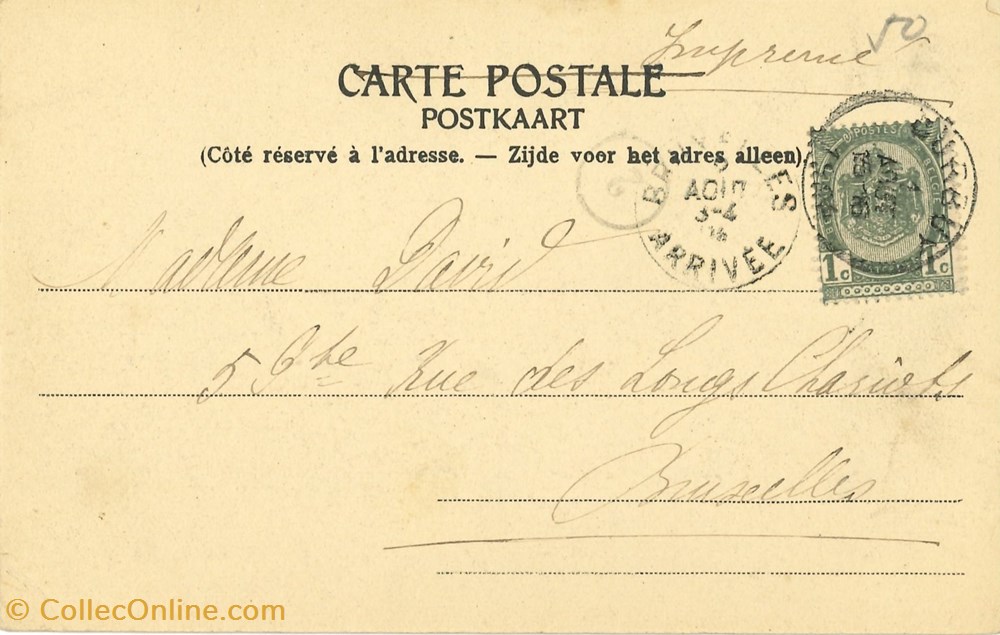 50
Imprimé
CARTE POSTALE
POSTKAART
(Côté réservé à l'adresse. — Zijde voor het adres alleen)
BRUXELLES
AOUT
3-4
ARRIVÉE
POSTES
1c 1c
Madame David
5 Rue des Longs Chariots
Bruxelles
© CollecOnline.com